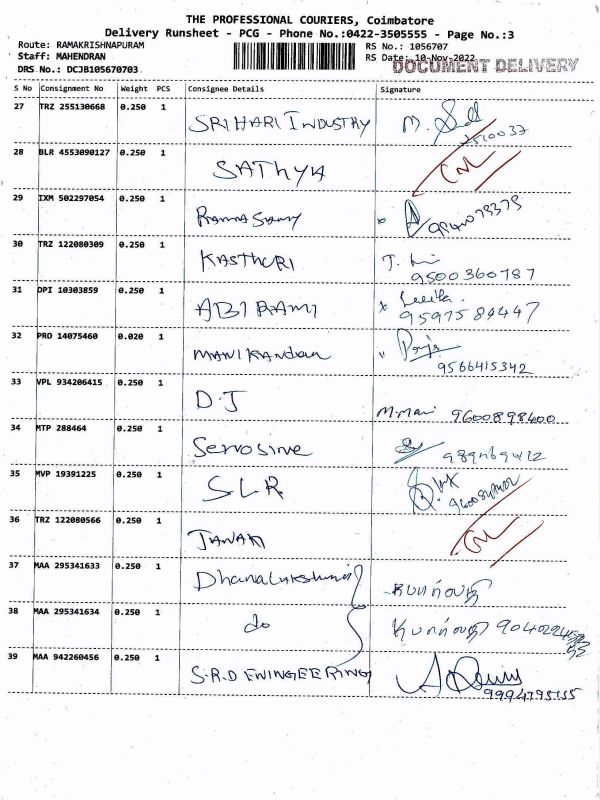 THE PROFESSIONAL COURIERS, Coimbatore
Delivery Runsheet - PCG - Phone No.:0422-3505555 - Page No.:3
Route: RAMAKRISHNAPURAM RS No.: 1056707
Staff: MAHENDRAN RS Date: 10-Nov-2022
DOCUMENT DELIVERY
DRS No.: DCJB105670703
S No Consignment No Weight PCS Consignee Details Signature
27 TRZ 255130668 0.250 1
SRI HARI INDUSTRY M.
28 BLR 4553090127 0.250 1
SATHYA
29 IXM 502297054 0.250 1
Ramasamy
30 TRZ 122080309 0.250 1
KASTHURI 9500360787
31 OPI 10303859 0.250 1
ABIRAMI
9597584447
32 PRO 14075460 0.020 1
MANIKANDAN
9566415342
33 VPL 934206415 0.250 1
D.J M.Mani 9600898400
34 MTP 288464 0.250 1
Servosine
35 MVP 19391225 0.250 1
S.L.R
36 TRZ 122080566 0.250 1
JANAKI
37 MAA 295341633 0.250 1
Dhanalakshmi
38 MAA 295341634 0.250 1
do
39 MAA 942260456 0.250 1
S.R.D ENINGEERING